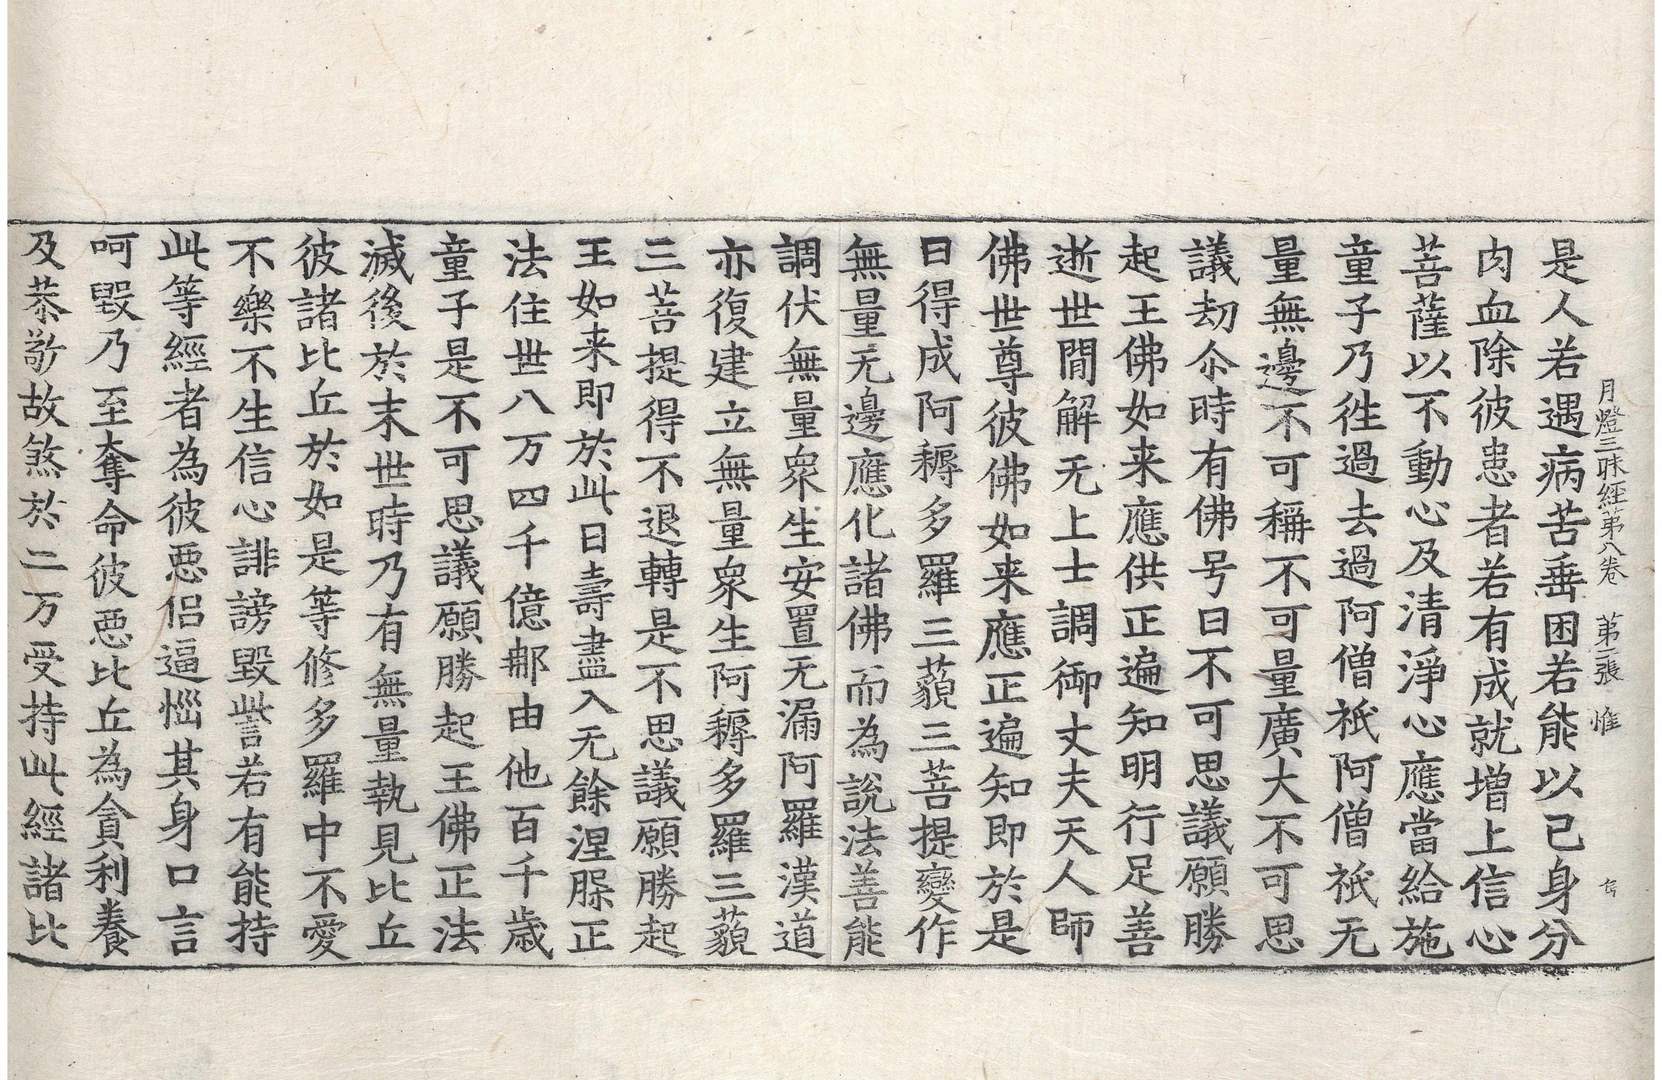 月燈三昧經第八卷　第二張　惟
是人若遇病苦垂困若能以己身分
肉血除彼患者若有成就增上信心
菩薩以不動心及清淨心應當給施
童子乃徃過去過阿僧祇阿僧祇无
量無邊不可稱不可量廣大不可思
議劫尒時有佛号曰不可思議願勝
起王佛如来應供正遍知明行足善
逝世閒解无上士調御丈夫天人師
佛世尊彼佛如来應正遍知即於是
日得成阿耨多羅三藐三菩提變作
無量无邊應化諸佛而為說法善能
調伏無量衆生安置无漏阿羅漢道
亦復建立無量衆生阿耨多羅三藐
三菩提得不退轉是不思議願勝起
王如来即於此日壽盡入无餘涅槃正
法住世八万四千億那由他百千歳
童子是不可思議願勝起王佛正法
滅後於末世時乃有無量執見比丘
彼諸比丘於如是等修多羅中不愛
不樂不生信心誹謗毀呰若有能持
此等經者為彼惡侣逼惱其身口言
呵毀乃至奪命彼惡比丘為貪利養
及恭敬故煞於二万受持此經諸比